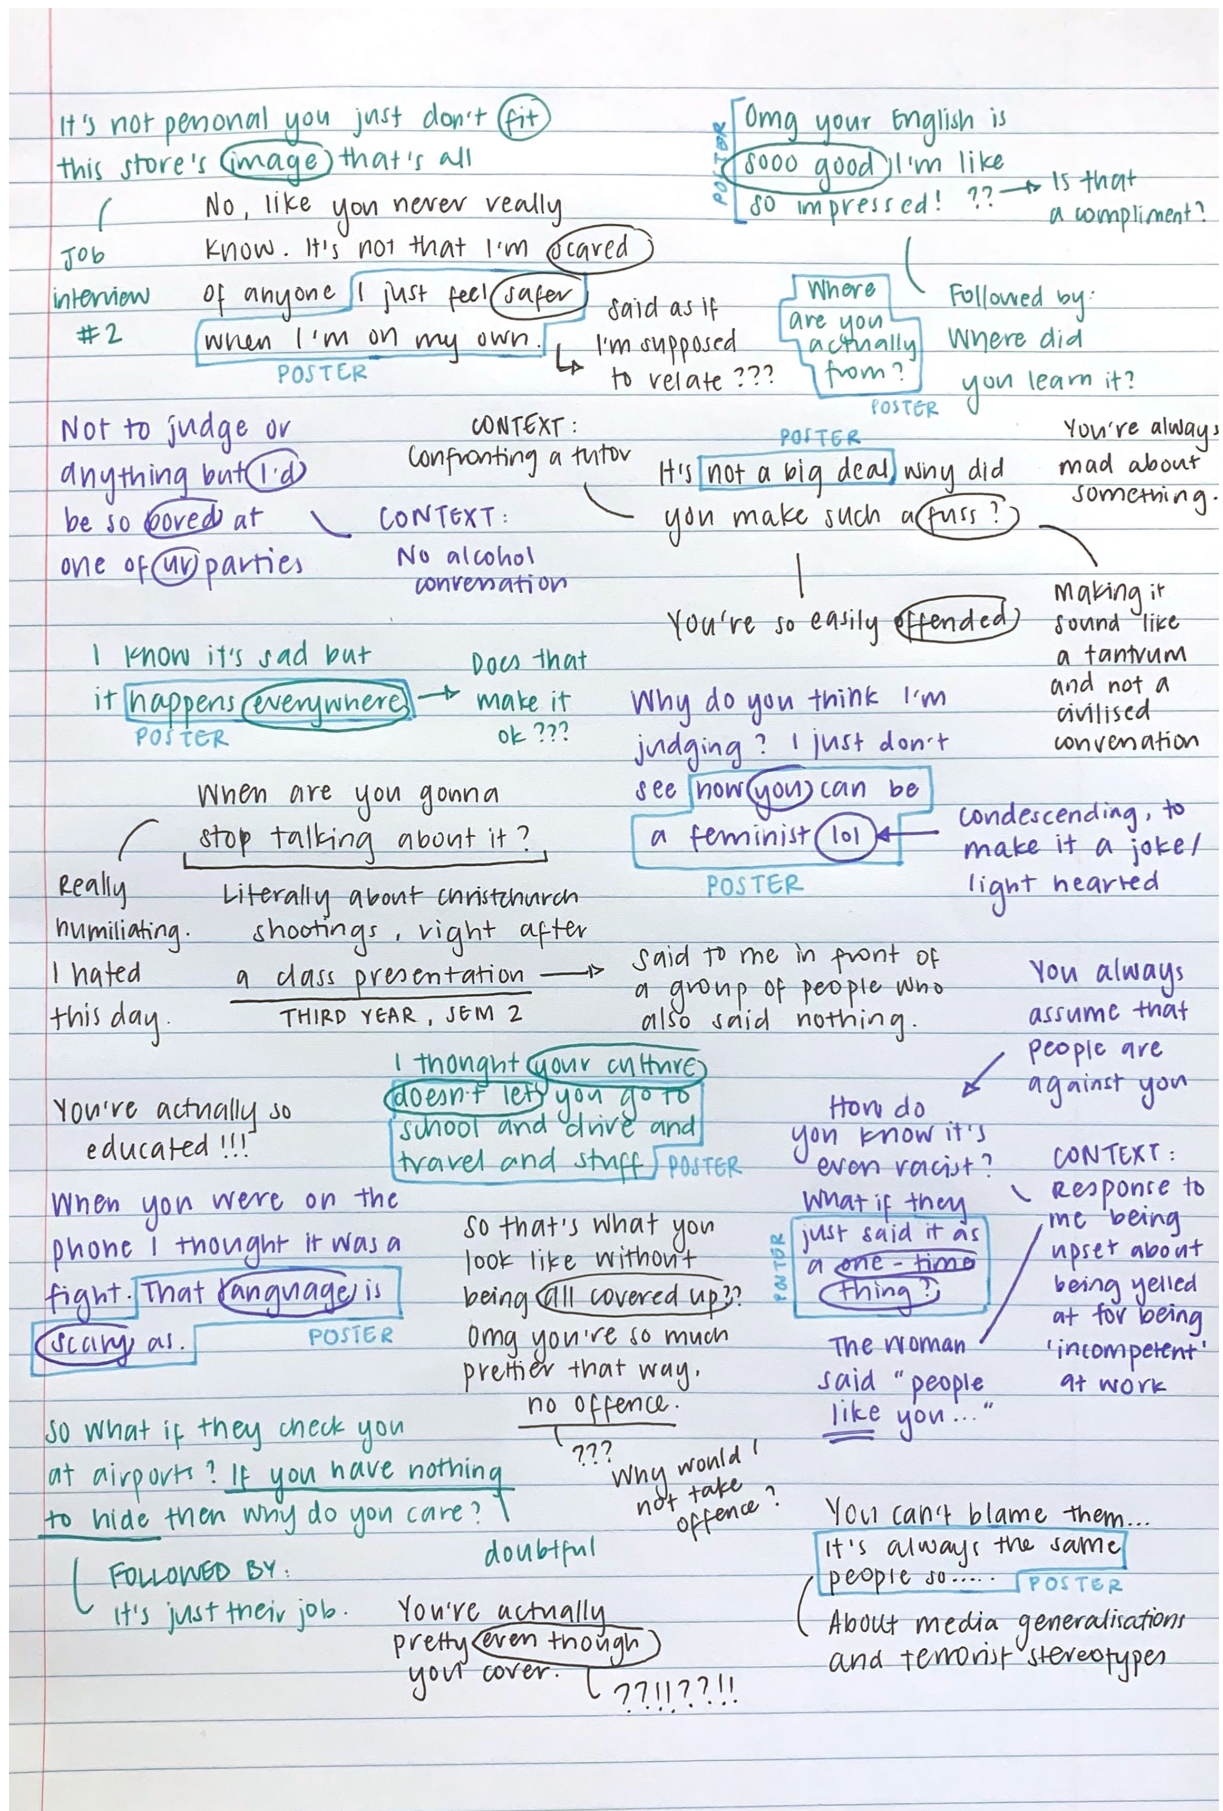 It's not personal you just don't fit
this store's image that's all
Job
interview
#2
No, like you never really
know. It's not that I'm scared
of anyone I just feel safer
when I'm on my own.
POSTER
said as if
I'm supposed
to relate ???
POSTER
Omg your English is
sooo good I'm like
so impressed! ??
Is that
a compliment?
Where
are you
actually
from?
POSTER
Followed by:
Where did
you learn it?
Not to judge or
anything but I'd
be so bored at
one of ur parties
CONTEXT:
No alcohol
conversation
CONTEXT:
Confronting a tutor
POSTER
It's not a big deal why did
you make such a fuss?
You're always
mad about
something.
You're so easily offended
Making it
sound like
a tantrum
and not a
civilised
conversation
I know it's sad but
it happens everywhere
POSTER
Does that
make it
ok ???
Why do you think I'm
judging? I just don't
see how you can be
a feminist lol
POSTER
condescending, to
make it a joke/
light hearted
When are you gonna
stop talking about it?
Really
humiliating.
I hated
this day.
Literally about christchurch
shootings, right after
a class presentation
THIRD YEAR, SEM 2
said to me in front of
a group of people who
also said nothing.
You always
assume that
people are
against you
You're actually so
educated!!!
I thought your culture
doesn't let you go to
school and drive and
travel and stuff
POSTER
How do
you know it's
even racist?
What if they
just said it as
a one-time
thing?
POSTER
CONTEXT:
Response to
me being
upset about
being yelled
at for being
'incompetent'
at work
The woman
said "people
like you..."
When you were on the
phone I thought it was a
fight. That language is
scary as.
POSTER
So that's what you
look like without
being all covered up??
Omg you're so much
prettier that way.
no offence.
???
Why would I
not take
offence?
So what if they check you
at airports? If you have nothing
to hide then why do you care?
doubtful
FOLLOWED BY:
It's just their job.
You're actually
pretty even though
your cover.
??!!??!!
You can't blame them...
It's always the same
people so.....
POSTER
About media generalisations
and terrorist stereotypes